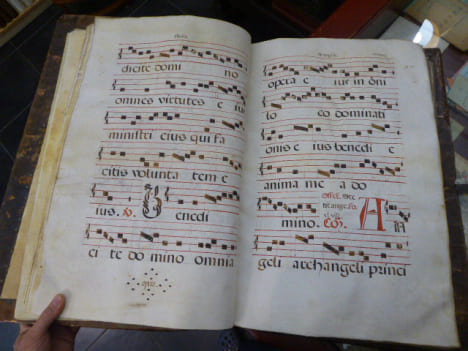 dicite domi no
omnes virtutes e ius
ministri eius qui fa
citis volunta tem e
ius. ℣. Benedi
ci te do mino omnia
opera e ius in oni
lo co dominati
onis e ius benedi c
anima me a do
mino. Cõ. A n
geli archangeli princi